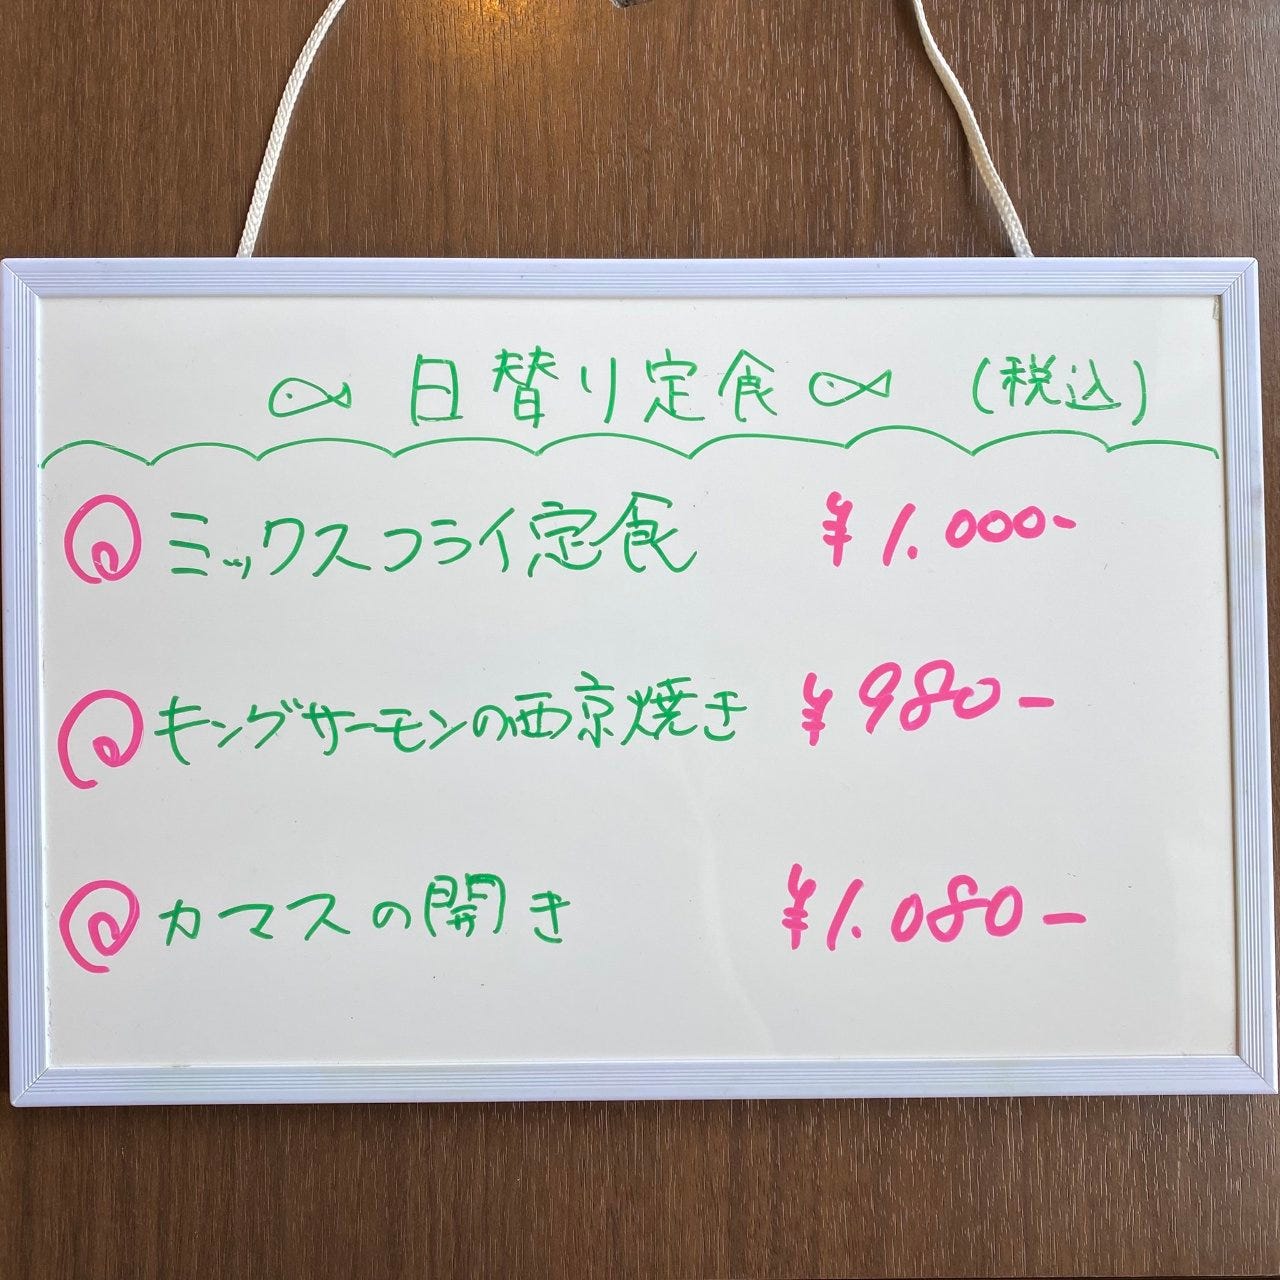 日替り定食 (税込)
ミックスフライ定食 ¥1.000-
キングサーモンの西京焼き ¥980-
カマスの開き ¥1.080-